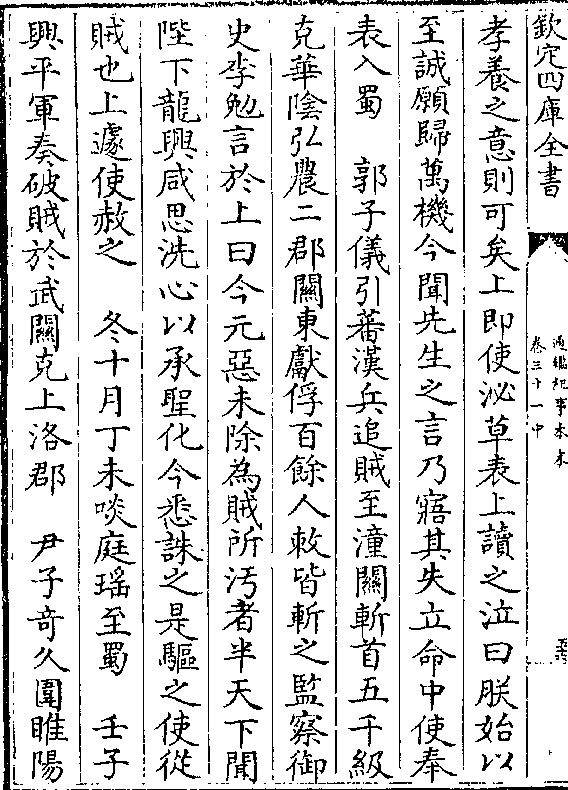 欽定四庫全書
通鑑紀事本末
卷三十一中
孝養之意則可矣上即使泌草表上讀之泣曰朕始以
至誠願歸萬機今聞先生之言乃寤其失立命中使奉
表入蜀　郭子儀引蕃漢兵追賊至潼關斬首五千級
克華陰弘農二郡關東獻俘百餘人敕皆斬之監察御
史李勉言於上曰今元惡未除為賊所汚者半天下聞
陛下龍興咸思洗心以承聖化今悉誅之是驅之使從
賊也上遽使赦之　冬十月丁未啖庭瑶至蜀　壬子
興平軍奏破賊於武關克上洛郡　尹子竒久圍睢陽